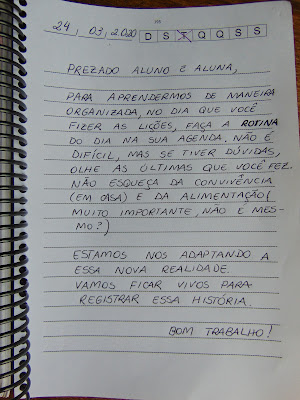 24 / 03 / 2020 D S T Q Q S S
PREZADO ALUNO E ALUNA,
PARA APRENDERMOS DE MANEIRA
ORGANIZADA, NO DIA QUE VOCÊ
FIZER AS LIÇÕES, FAÇA A ROTINA
DO DIA NA SUA AGENDA, NÃO É
DIFÍCIL, MAS SE TIVER DÚVIDAS,
OLHE AS ÚLTIMAS QUE VOCÊ FEZ.
NÃO ESQUEÇA DA CONVIVÊNCIA
(EM CASA) E DA ALIMENTAÇÃO(
MUITO IMPORTANTE, NÃO É MES-
MO?)
ESTAMOS NOS ADAPTANDO A
ESSA NOVA REALIDADE.
VAMOS FICAR VIVOS PARA
REGISTRAR ESSA HISTÓRIA.
BOM TRABALHO!